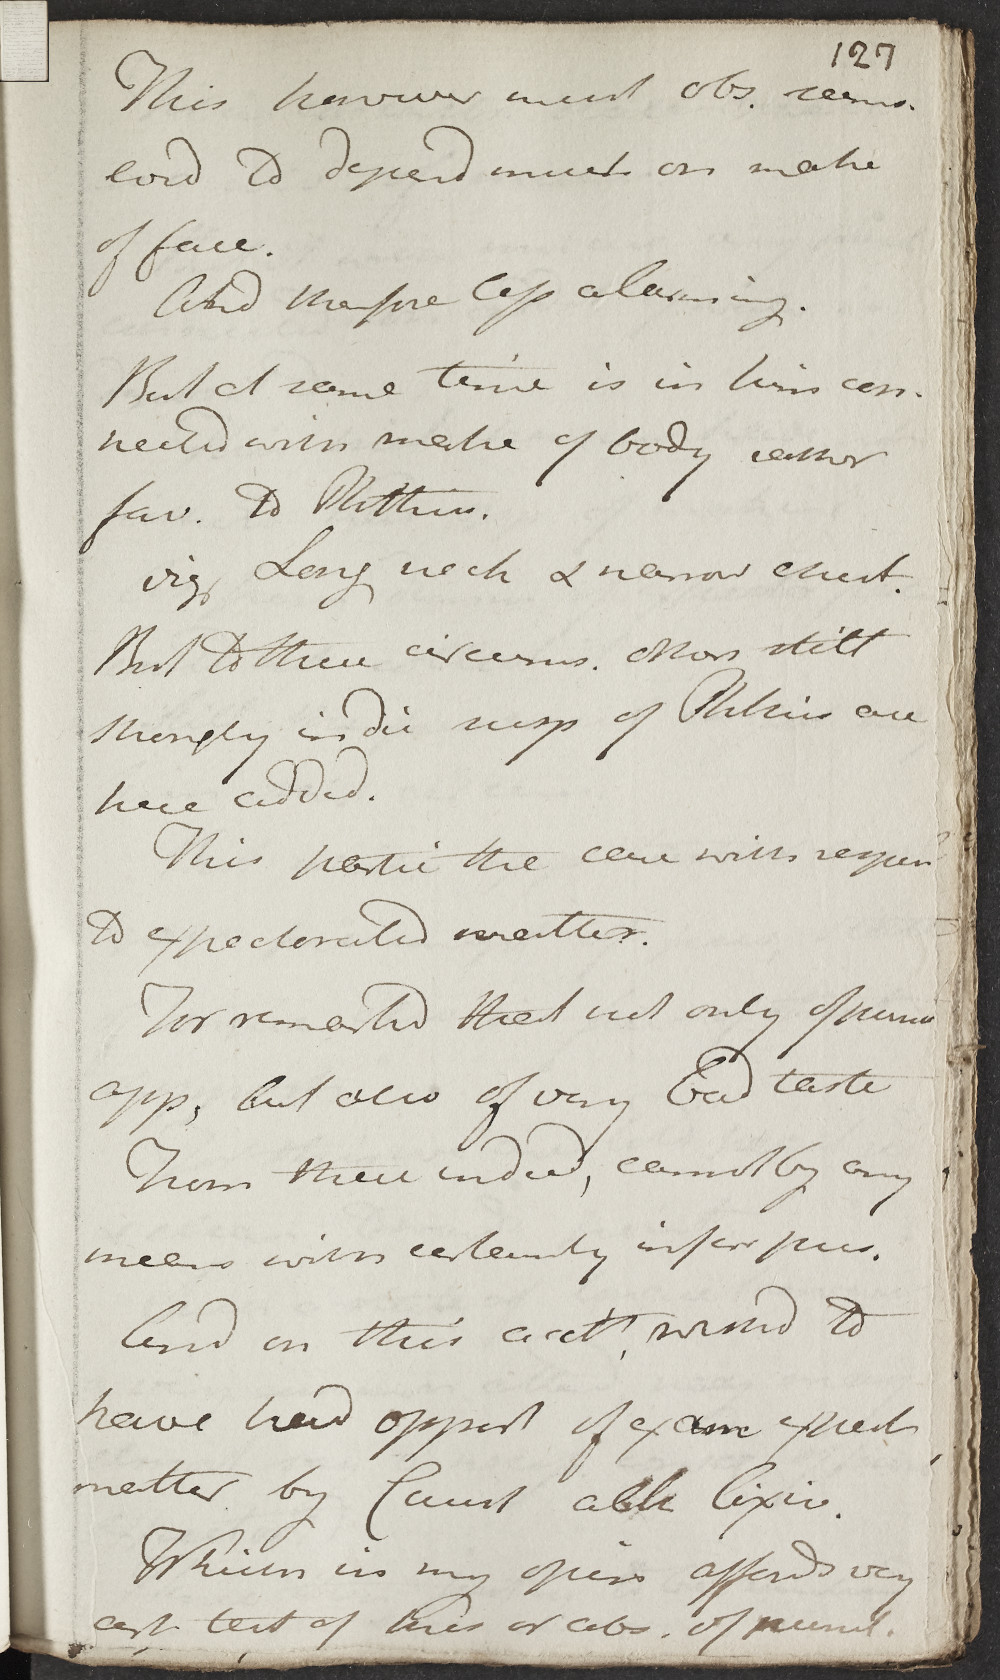 127
This however must obs. seems.
to depend much on make
of face.
And therefore less alarming.
But at same time is in him con-
nected with make of body rather
fav. to Phthisis.
viz, Long neck & narrow chest.
But to these circums. others still
strongly indic susp of Phthisis are
here added.
This partic the case with respect
to expectorated matter.
For remarked that not only of purul
app, but also of very bad taste
From these indeed, cannot by any
means with certainty infer pus.
And on this acct, wished to
have had opport of exam expect
matter by Caust alk lixiv.
Which in my opin affords very
cert test of pres or abs. of purul.